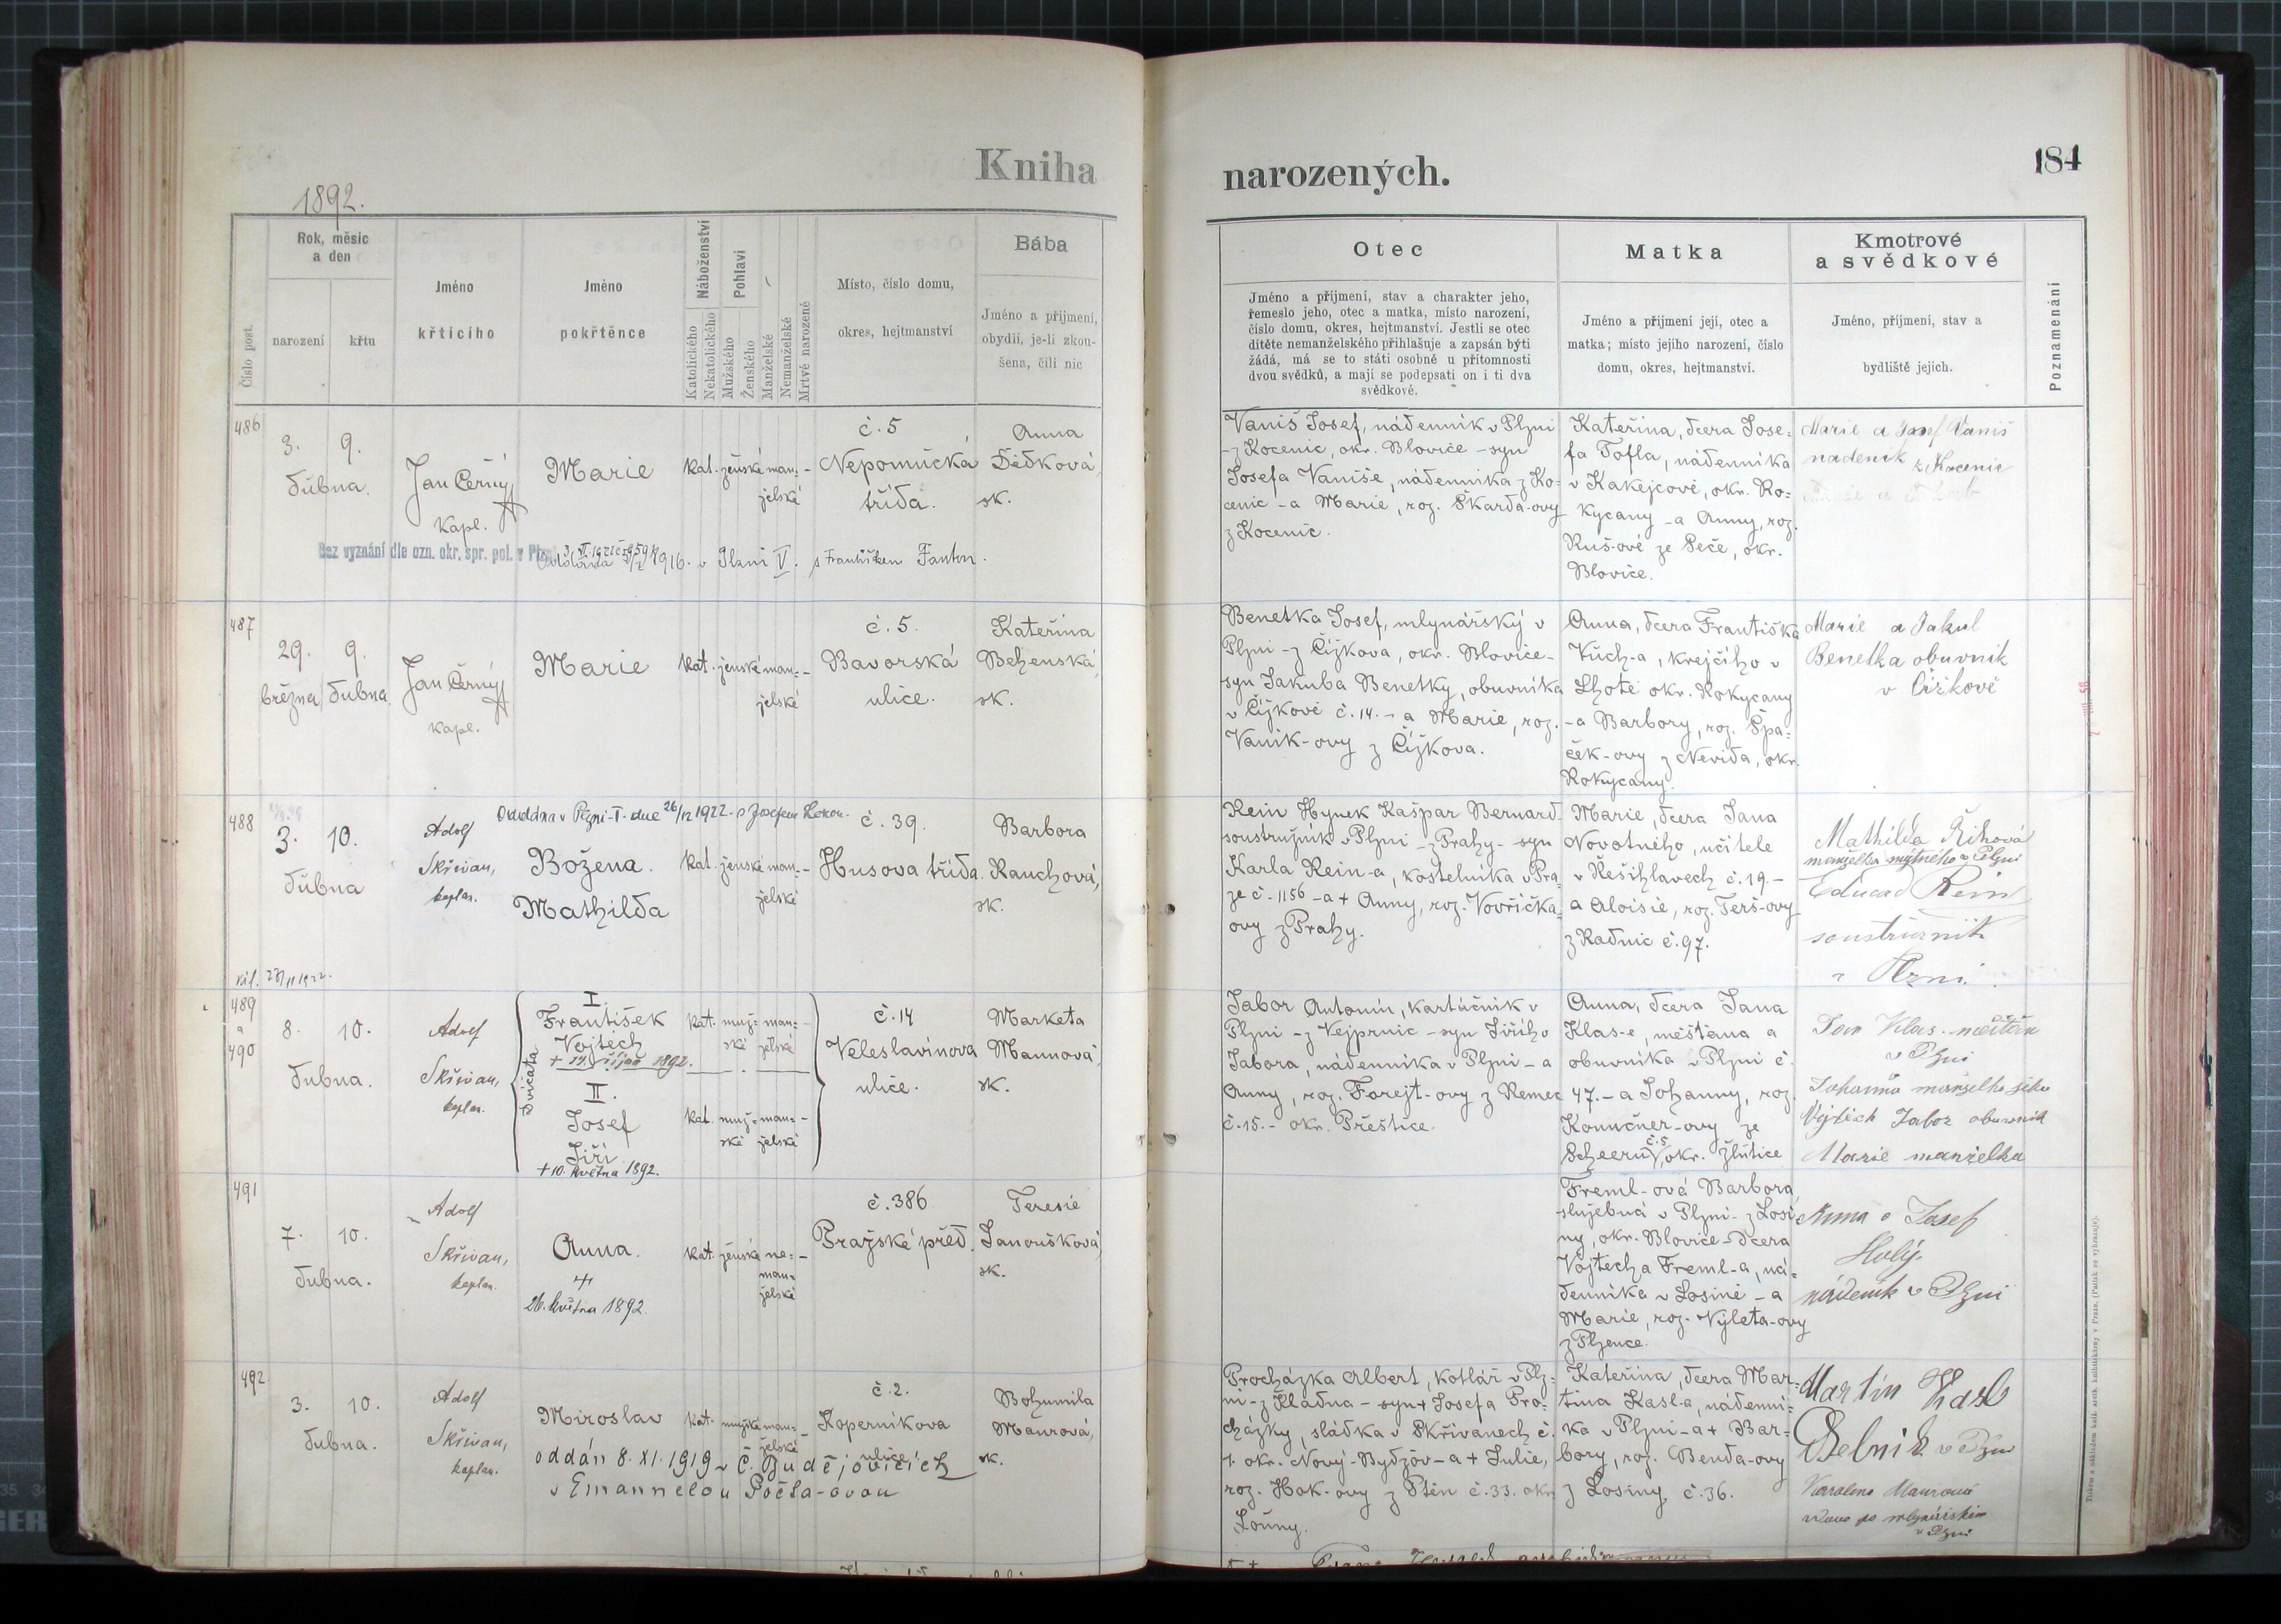 Kniha
narozených.
184
1892.
Rok, měsíc
a den
Číslo post.
narození
křtu
Jméno
křtícího
Jméno
pokřtěnce
Náboženství
Katolického
Nekatolického
Pohlaví
Mužského
Ženského
Manželské
Nemanželské
Mrtvě narozené
Místo, číslo domu,
okres, hejtmanství
Bába
Jméno a příjmení,
obydlí, je-li zkou-
šena, čili nic
Otec
Jméno a příjmení, stav a charakter jeho,
řemeslo jeho, otec a matka, místo narození,
číslo domu, okres, hejtmanství. Jestli se otec
dítěte nemanželského přihlašuje a zapsán býti
žádá, má se to státi osobně u přítomnosti
dvou svědků, a mají se podepsati on i ti dva
svědkové.
Matka
Jméno a příjmení její, otec a
matka; místo jejího narození, číslo
domu, okres, hejtmanství.
Kmotrové
a svědkové
Jméno, příjmení, stav a
bydliště jejich.
Poznamenání
486
3. 9.
dubna.
Jan Černý
kapl.
Marie
kat. ženské man=
želské
č. 5
Nepomucká
třída.
Anna
Dědková,
zk.
Bez vyznání dle ozn. okr. spr. pol. v Plzni
1916. v Plzni V. s Františkem Fanton.
Vaniš Josef, nádenník v Plzni
- z Kocenic, okr. Blovice - syn
Josefa Vaniše, nádenníka z Ko=
cenic - a Marie, roz. Škarda-ovy
z Kocenic.
Kateřina, dcera Jose=
fa Tofla, nádenníka
v Kakejcově, okr. Ro=
kycany - a Anny, roz.
Ruš-ové ze Seče, okr.
Blovice.
Marie a Josef Vaniš
nadeník z Kocenic
487
29. 9.
března dubna
Jan Černý
kapl.
Marie
kat. ženské man=
želské
č. 5.
Bavorská
ulice.
Kateřina
Beženská,
zk.
Benetka Josef, mlynářský v
Plzni - z Čížkova, okr. Blovice -
syn Jakuba Benetky, obuvníka
v Čížkově č. 14. - a Marie, roz.
Vaník-ovy z Čížkova.
Anna, dcera Františka
Vuch-a, krejčího v
Lhotě okr. Rokycany
- a Barbory, roz. Špa=
ček-ovy z Nevida, okr.
Rokycany.
Marie a Jakub
Benetka obuvník
v Čížkově
488
3. 10.
dubna
Adolf
Skřivan,
kaplan.
Oddána v Plzni-I. dne 26/12 1922 s Josefem
Božena.
Mathilda
kat. ženské man=
želské
č. 39.
Husova třída.
Barbora
Rauchová,
zk.
Rein Hynek Kašpar Bernard
soustružník v Plzni - z Prahy - syn
Karla Rein-a, kostelníka v Pra=
ze č. 1156 - a + Anny, roz. Vovřička=
ovy z Prahy.
Marie, dcera Jana
Novotného, učitele
v Řešihlavech č. 19. -
a Aloisie, roz. Terš-ovy
z Radnic č. 97.
Mathilda Říhová
manželka mýtného v Plzni
Eduard Rein
soustružník
v Plzni.
489
a
490
8. 10.
dubna.
Adolf
Skřivan,
kaplan.
Dvojčata
I.
František
Vojtěch
+ 14. října 1892.
II.
Josef
Jiří
+ 10. května 1892.
kat. muž= man=
ské želské
kat. muž= man=
ské želské
č. 14
Veleslavínova
ulice.
Marketa
Mannová,
zk.
Tabor Antonín, kartáčník v
Plzni - z Vejprnic - syn Jiřího
Tabora, nádenníka v Plzni - a
Anny, roz. Forejt-ovy z Nemec
č. 15. - okr. Přeštice.
Anna, dcera Jana
Klas-e, měšťana a
obuvníka v Plzni č.
47. - a Johanny, roz.
Konučner-ovy ze
Scheerů č. 5, okr. Žlutice
Jan Klas - měšťan
v Plzni
Johanna manželka jeho
Vojtěch Tabor obuvník
Marie manželka
491
7. 10.
dubna.
Adolf
Skřivan,
kaplan.
Anna.
+
26. května 1892.
kat. ženské ne=
man=
želské
č. 386
Pražské před.
Teresie
Janoušková,
zk.
Freml-ová Barbora,
služebná v Plzni - z Losi=
ny, okr. Blovice - dcera
Vojtěcha Freml-a, ná=
denníka v Losině - a
Marie, roz. Výleta-ovy
z Plzence.
Anna a Josef
Holý
nádeník v Plzni
492
3. 10.
dubna.
Adolf
Skřivan,
kaplan.
Miroslav
kat. mužské man=
želské
oddán 8. XI. 1919 v Č. Budějovicích
s Emanuelou Pošta-ovou
č. 2.
Koperníkova
ulice
Bohumila
Maurová,
zk.
Procházka Albert, kotlář v Plz=
ni - z Kladna - syn + Josefa Pro=
cházky, sládka v Skřivanech č.
1. okr. Nový-Bydžov - a + Julie,
roz. Hok-ovy z Pten č. 33. okr.
Louny.
Kateřina, dcera Mar=
tina Kasl-a, nádenní=
ka v Plzni - a + Bar=
bory, roz. Benda-ovy
z Losiny č. 36.
Martin Kasl
Delník v Plzni
Karolina Maurová
vdova po mlynářském
v Plzni